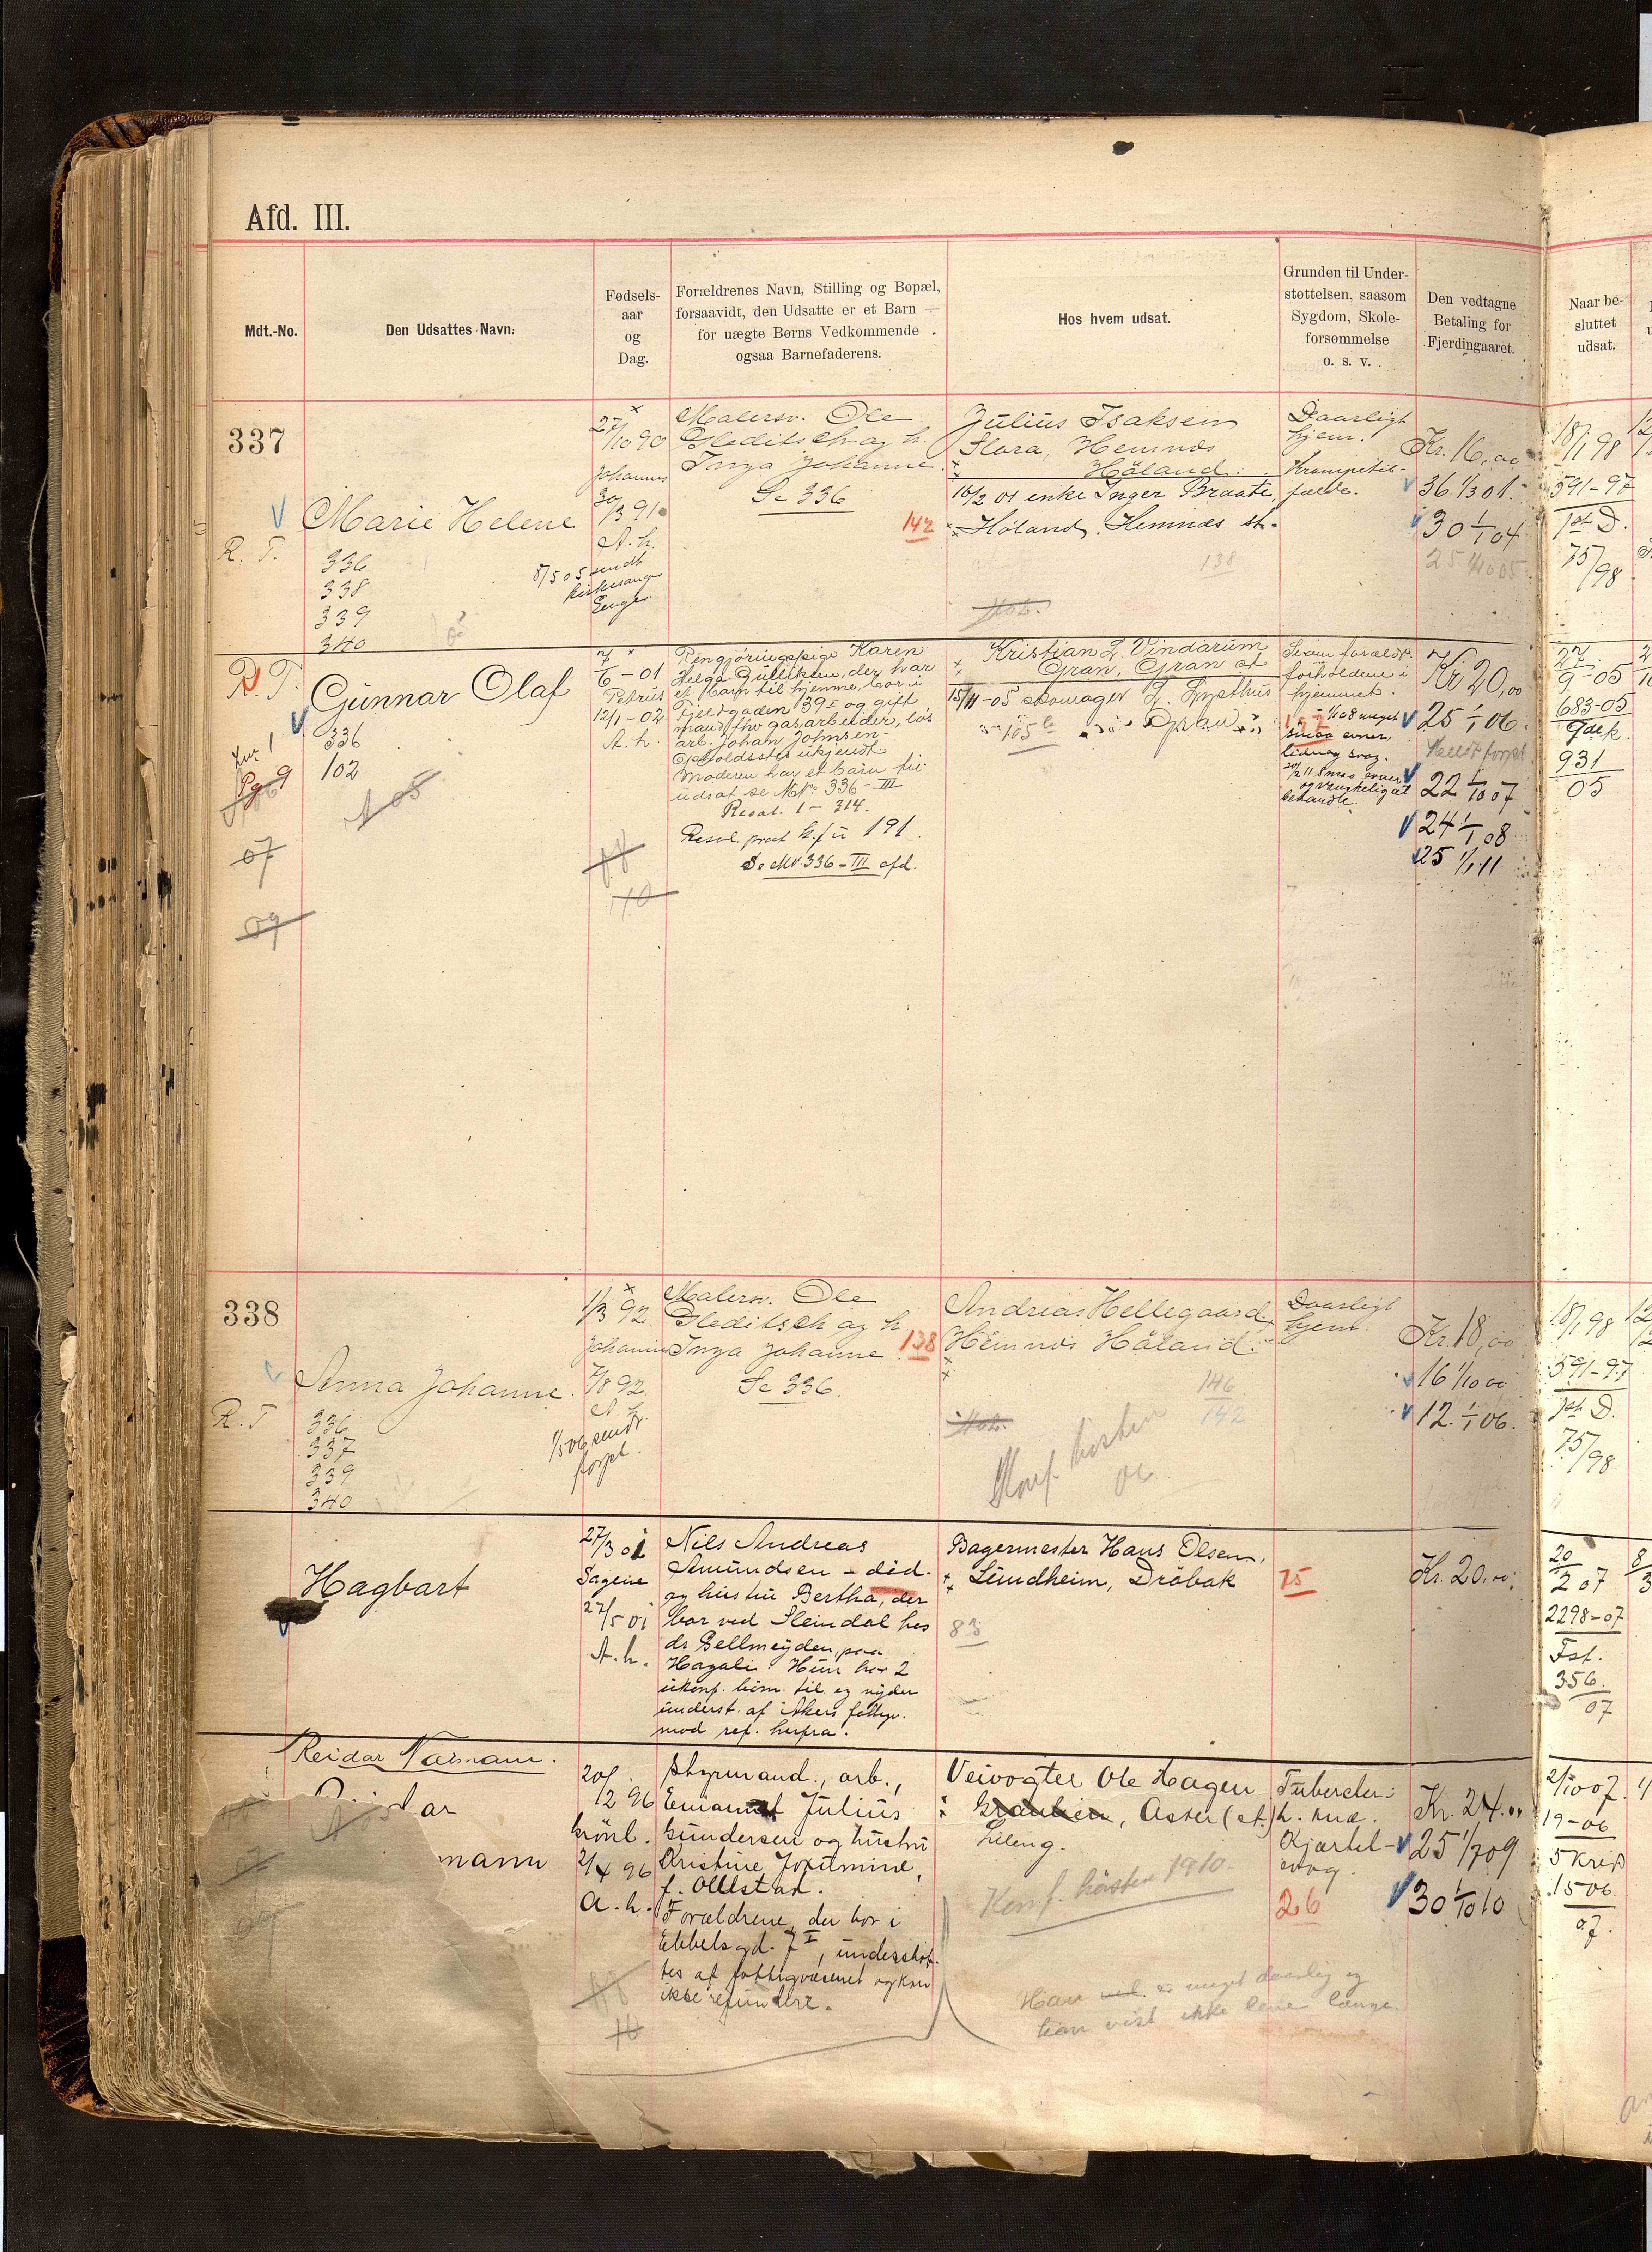 Afd. III.
Mdt.-No.
Den Udsattes Navn.
Fødsels-
aar
og
Dag.
Forældrenes Navn, Stilling og Bopæl,
forsaavidt, den Udsatte er et Barn —
for uægte Børns Vedkommende
ogsaa Barnefaderens.
Hos hvem udsat.
Grunden til Under-
støttelsen, saasom
Sygdom, Skole-
forsømmelse
o. s. v.
Den vedtagne
Betaling for
Fjerdingaaret.
Naar be-
sluttet
udsat.
337
Marie Helene
R. T.
336
338
339
340
27/10 90
Johannes
30/3 91
A. h.
8/5 05 sendt
Malersv. Ole
Gleditsch og h.
Inga Johanne.
Se 336
142
Julius Isaksen
Flora, Hemnes
Höland.
16/2 01 enke Inger Braate,
Höland. Hemnes st.
138
Daarligt
hjem.
Krampetil-
fælde.
Kr. 16,00
36 1/3 01.
30 1/1 04
25 1/10 05
18/1 98
591-97
1st D.
75/98
R. T.
Gunnar Olaf
336
102
Pg 9
07
09
7/6 - 01
Petrus
12/1 - 02
A. h.
Rengjøringspige Karen
Helga Gulliksen, der har
et barn til hjemme, bor i
Fjeldgaden 39 I og gift
mand, fhv gasarbeider, løs
arb. Johan Johnsen
Opholdssted ukjendt
Moderen har et barn til
udsat se Mt No 336 - III
Resol. 1 - 314.
191.
Se Mt 336 - III afd.
Kristian L. Vindarum
Gran, Gran st
15/11-05 skomager L. Lysthus
Gran
105
forholdene i
hjemmet.
1/1 08 meget
smaa evner,
behandle.
Kr 20,00
25 1/1 06.
22 1/10 07
24 1/1 08
25 1/1 11
27/9-05
683-05
931
05
338
Anna Johanne
R. T
336
337
339
340
1/3 92.
Johannes
7/8 92
A. h.
1/5 06 sendt
forpl.
Malersv. Ole
Gleditsch og h.
Inga Johanne
Se 336.
138
Andreas Hellegaard
Hemnes Höland.
146
142
Konf. høsten
06
Daarligt
hjem.
Kr. 18,00
16 1/10 00
12 1/1 06.
18/1 98
591-97
1st D.
75/98
Hagbart
27/3 01
Sagene
27/5 01
A. h.
Nils Andreas
Amundsen - död.
og hustru Bertha, der
bor ved Sleindal hos
dr Gellmeyden paa
Hagali. Hun har 2
ukonf. börn til og nyder
underst. af Akers fattigv.
mod ref. herfra.
Bagermester Hans Olsen,
Lundheim, Dröbak
83
75
Kr. 20,00
20/2 07
2298-07
Fst.
356.
07
Reidar Normann.
mann
20/12 96
Grönl.
2/4 96
A. h.
Styrmand., arb.,
Emanuel Julius
Gundersen og hustru
Kristine Josefmine,
f. Ollestad.
Forældrene, der bor i
Ebbelsgd. 7 I, understøt-
tes af fattigvæsenet og kan
ikke refundere.
Veivogter Ole Hagen
Granlien, Asker (st.)
Konf. høsten 1910.
Han er meget daarlig og
kan vist ikke leve længe.
Kjertel-
svag.
26
Kr. 24.00
25 1/7 09
30 1/10 10
2/10 07.
19-06
5 Kreds
15 06
07.